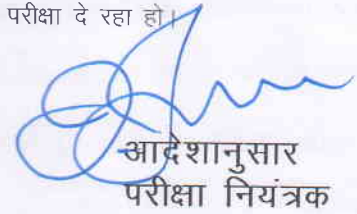 परीक्षा दे रहा हो।
आदेशानुसार
परीक्षा नियंत्रक